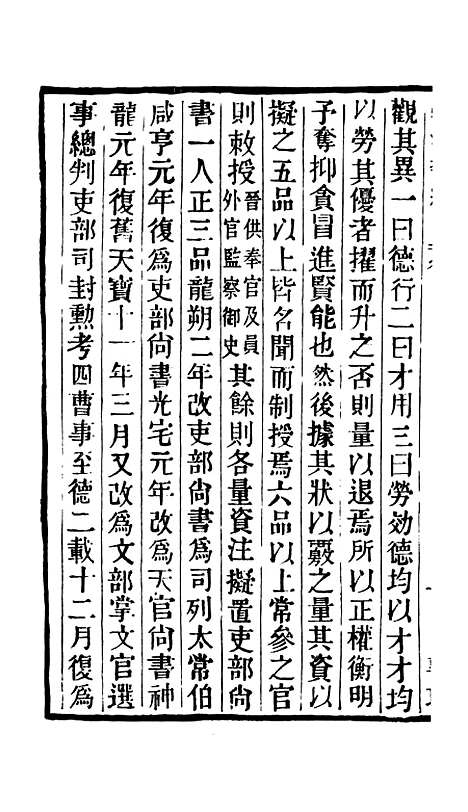 觀其異一曰德行二曰才用三曰勞効德均以才才均
以勞其優者擢而升之否則量以退焉所以正權衡明
予奪抑貪冒進賢能也然後據其狀以覈之量其資以
擬之五品以上皆名聞而制授焉六品以上常參之官
則敕授晉供奉官及員外官監察御史其餘則各量資注擬置吏部尙
書一人正三品龍朔二年改吏部尙書爲司列太常伯
咸亨元年復爲吏部尙書光宅元年改爲天官尙書神
龍元年復舊天寶十一年三月又改爲文部掌文官選
事總判吏部司封勲考四曹事至德二載十二月復爲